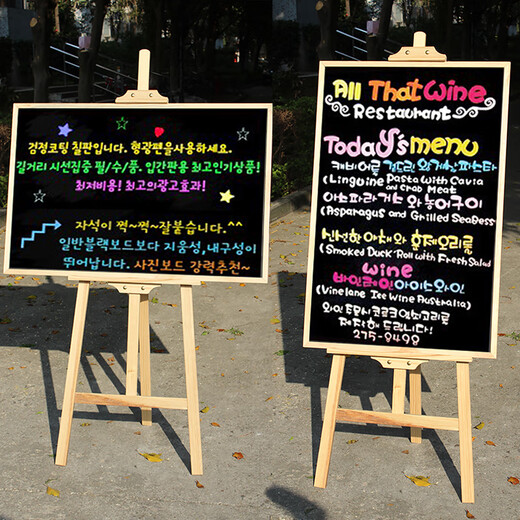 검정코팅 칠판입니다. 형광펜을사용하세요.
길거리 시선집중 필/수/품. 입간판용 최고인기상품!
최저비용! 최고의광고효과!
자석이 쩍~쩍~잘붙습니다.^^
일반블랙보드보다 지움성,내구성이
뛰어납니다. 사진보드 강력추천~
All That Wine
Restaurant
Today's menu
캐비어를 곁드린 와 게살파스타
(Linguine Pasta with Cavia
and Crab Meat
아스파라거스와 농어구이
(Asparagus and Grilled SeaBess
신선한 야채와 훈제오리롤
(Smoked Duck Roll with Fresh Salad
Wine
바인레인아이스와인
(Vinelane Ice Wine Australia)
와인 동호시
제작해 드립니다!
275-8498